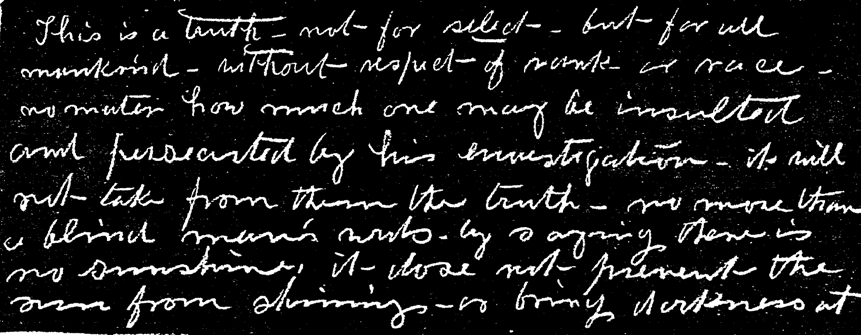 This is a truth - not for select - but for all
mankind - without respect of rank or race -
no mater how much one may be insulted
and persecuted by his envestigation - it will
not take from them the truth - no more than
a blind man's words - by saying there is
no sunshine, it dose not prevent the
sun from shining - or bring darkness at